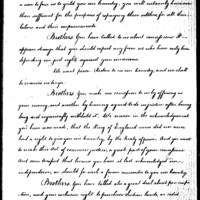 a view to force us to yield you our country, you will certainly
them sufficient for the purposes of repaying these settlers for all their
labor and their improvements.
Brothers You have talked to us about concessions. It
appears strange that you should expect any from us who have only been
defending our just rights against your invasions.
We want peace. Restore to us our country, and we shall
be enemies no longer.
Brothers You make one concession to us by offering us
your money, and another by having agreed to do us justice after having
long and injuriously withheld it. We mean in the acknowledgment
you have now made, that the King of England never did nor ever
had a right to give you our Country by the treaty of peace. And you want
to make this act of common justice, a great part of your concession.
And seem to expect that because you have at last acknowledged our
independence, we should for such a favor surrender to you our country.
Brothers You have talked also a great deal about pre-emp-
tion, and your exclusive right to purchase Indian lands, as ceded